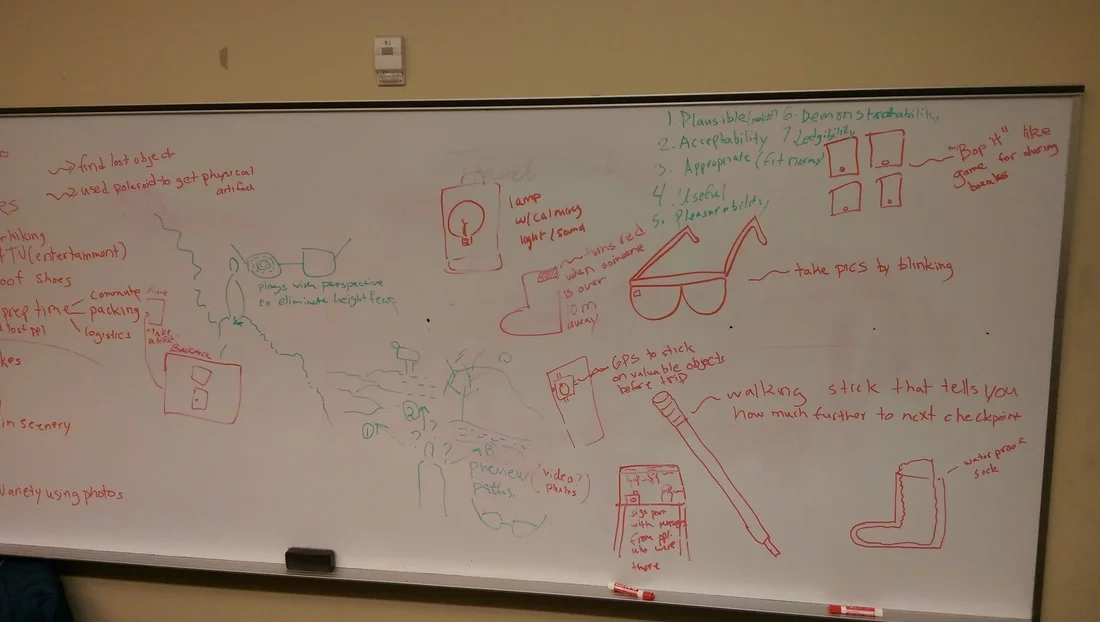 find lost object
used polaroid to get physical
artifact
hiking
TV (entertainment)
oof shoes
prep time
commute
packing
logistics
lost ppl
Backpack
kes
in scenery
variety using photos
plays with perspective
to eliminate height fear
lamp
w/calming
light/sound
1 Plausible
2. Acceptability
3. Appropriate (fit norms)
4 Useful
5. Pleasurability
6. Demonstratability
7 Ledgibility
"Bop It" like
game for during
breaks
turns red
when someone
is over
10m
away
take pics by blinking
GPS to stick
on valuable objects
before trip
walking stick that tells you
how much further to next checkpoint
①
②
preview
paths
(video?
photos)
sign post
with messages
from ppl.
who were
there
waterproof
sock